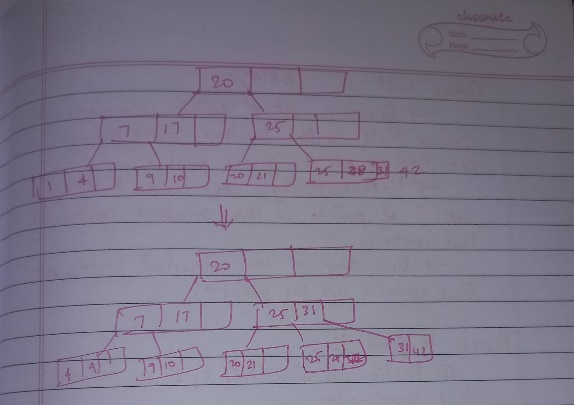 classmate
Date
Page
20
7 17 25
1 4 9 10 20 21 25 28 31 42
20
7 17 25 31
9 10 20 21 25 31 42